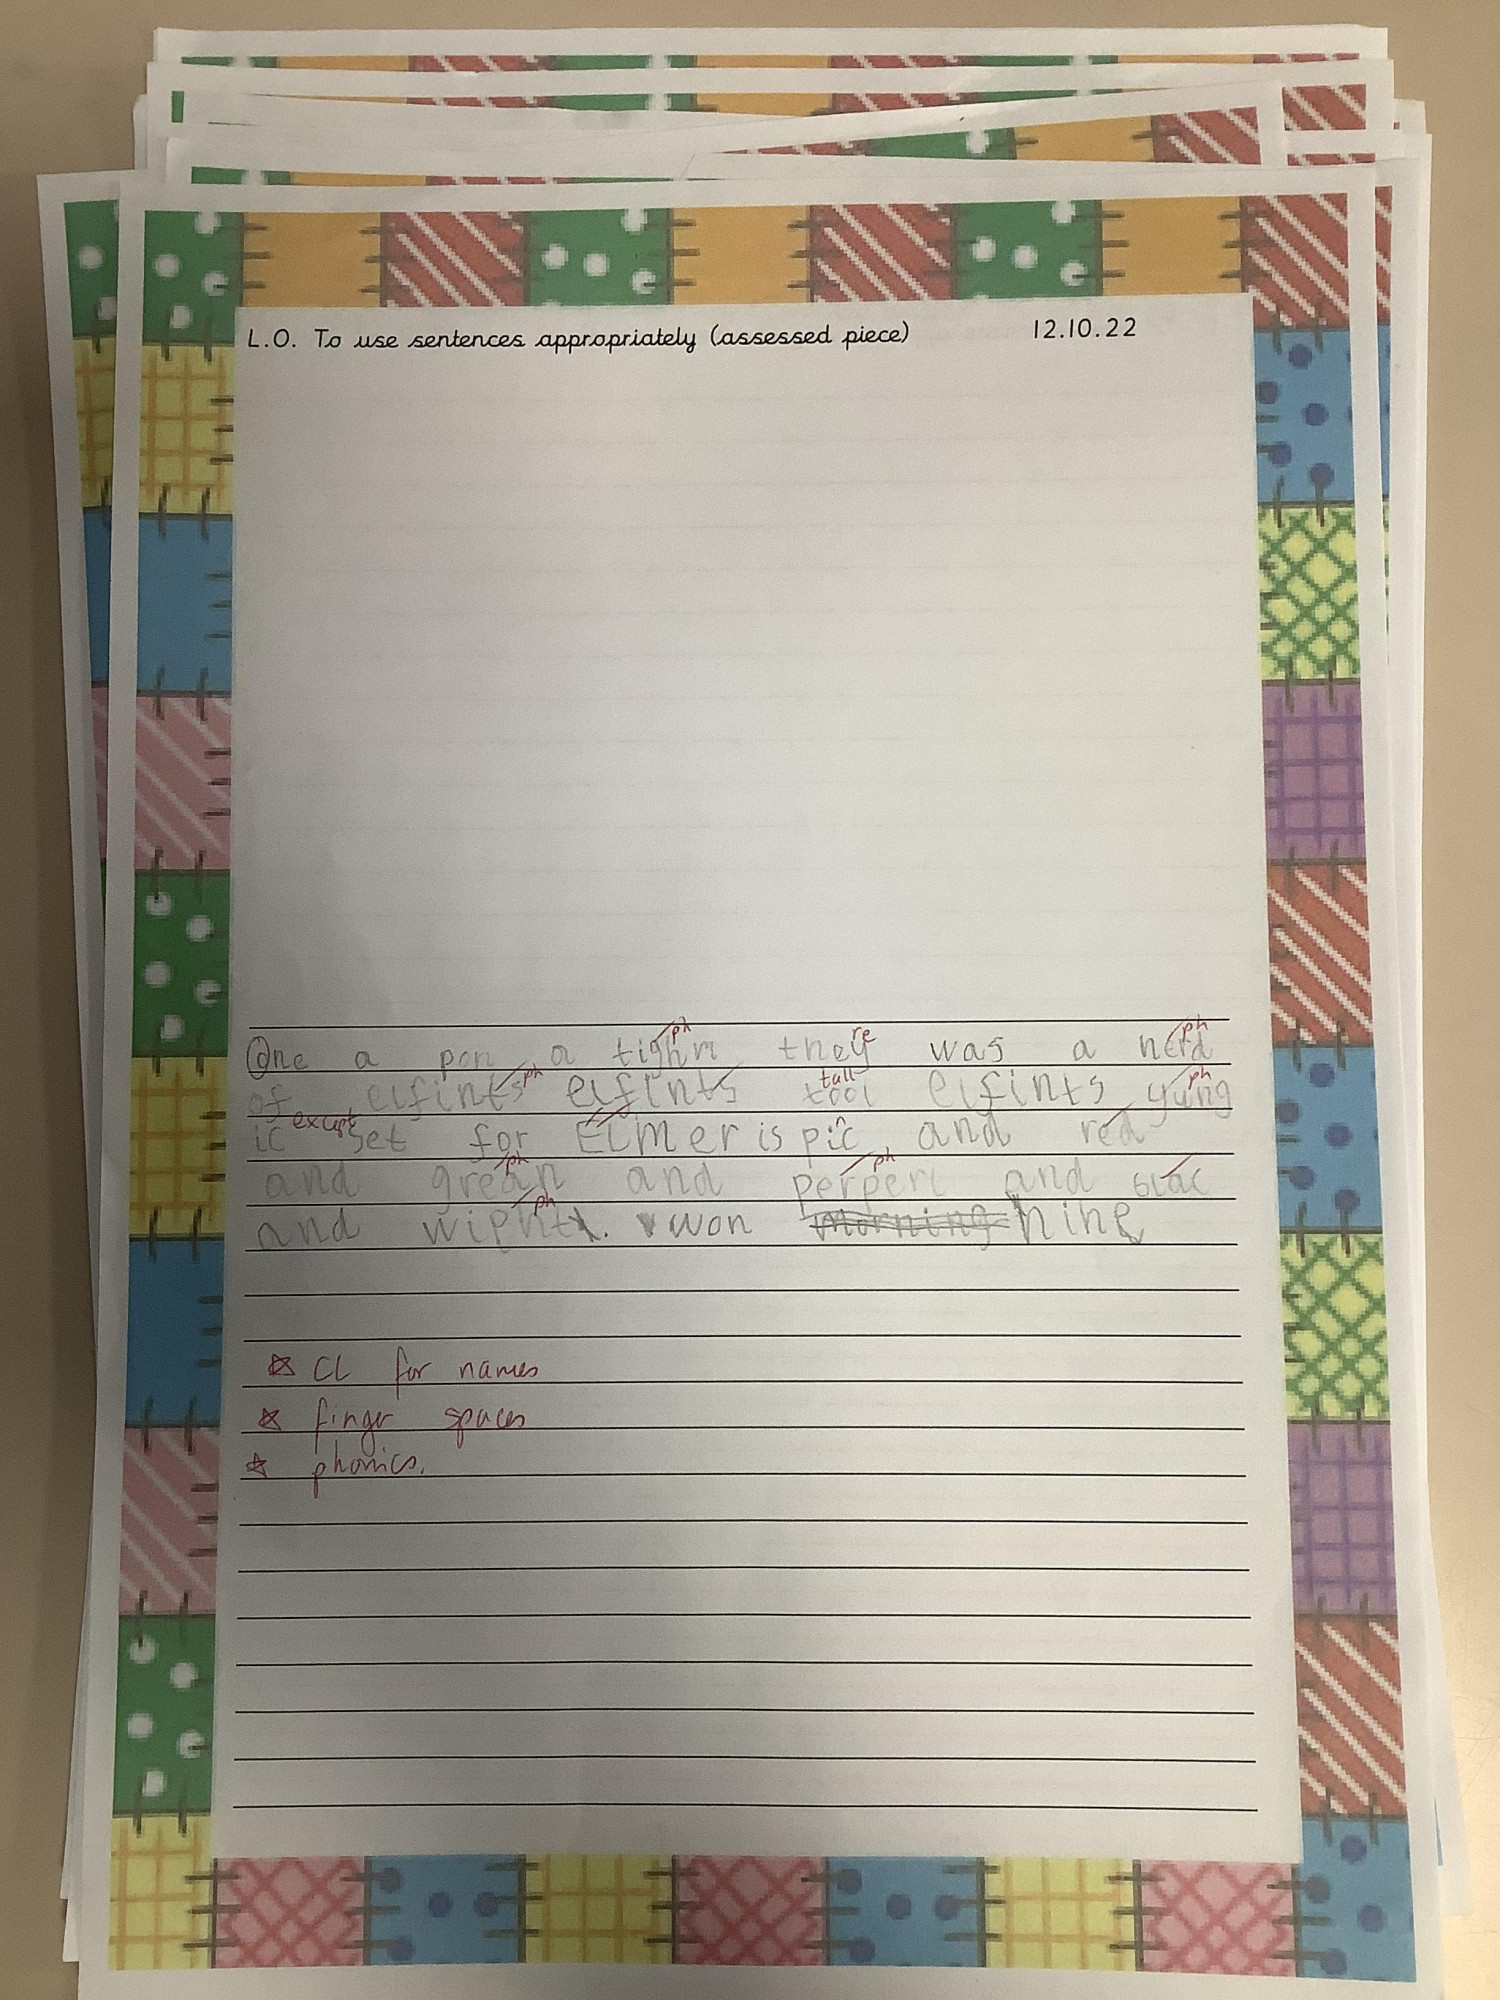 L.O. To use sentences appropriately (assessed piece) 12.10.22
ph re ph
One a pon a tighm they was a nerd
ph tall ph
of elfints elfints tool elfints yung
except
ic set for Elmer is pic and red
ph ph
and grean and perperl and blac
ph
and wipht. won morning nine
CL for names
finger spaces
phonics.